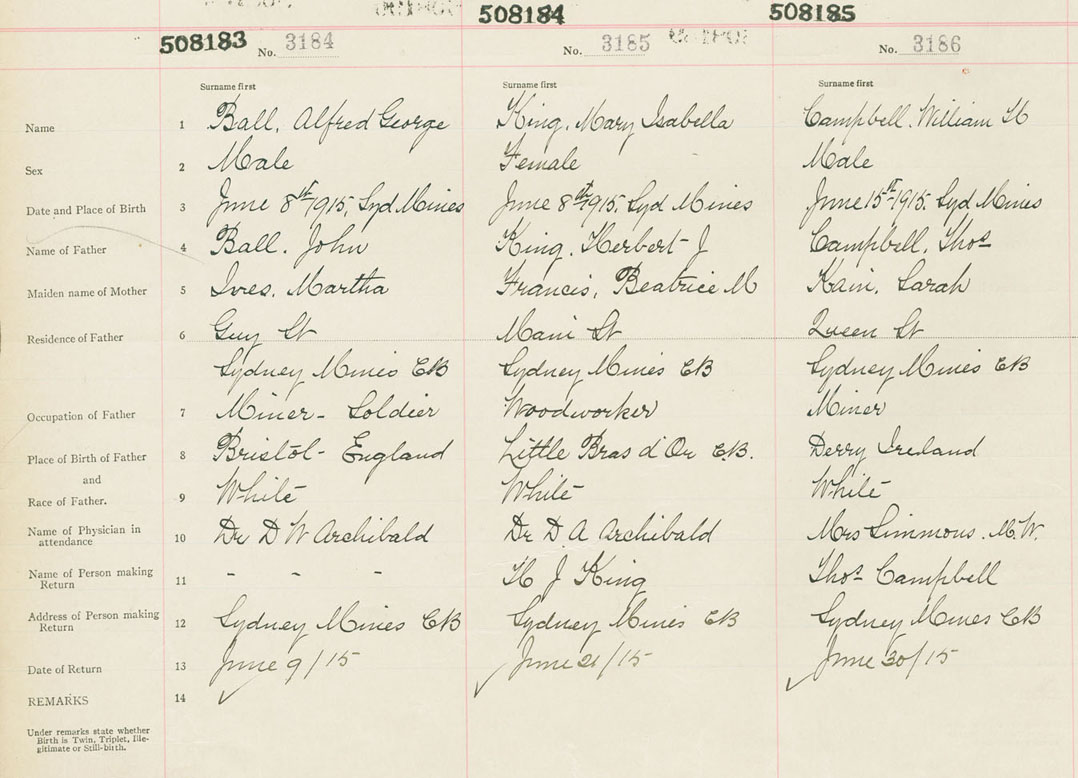 508183 508184 508185
No. 3184 No. 3185 No. 3186
Surname first Surname first Surname first
Name 1 Ball, Alfred George King, Mary Isabella Campbell, William H
Sex 2 Male Female Male
Date and Place of Birth 3 June 8th 1915, Syd Mines June 8th 1915, Syd Mines June 15th 1915, Syd Mines
Name of Father 4 Ball, John King, Herbert J Campbell, Thos
Maiden name of Mother 5 Ives, Martha Francis, Beatrice M Kain, Sarah
Residence of Father 6 Guy St Main St Queen St
Sydney Mines CB Sydney Mines CB Sydney Mines CB
Occupation of Father 7 Miner - Soldier Woodworker Miner
Place of Birth of Father 8 Bristol - England Little Bras d'Or C.B. Derry Ireland
and
Race of Father. 9 White White White
Name of Physician in attendance 10 Dr D W Archibald Dr D A Archibald Mrs Simmons. M.W.
Name of Person making Return 11 - - - H J King Thos Campbell
Address of Person making Return 12 Sydney Mines CB Sydney Mines CB Sydney Mines CB
Date of Return 13 June 9/15 June 21/15 June 30/15
REMARKS 14
Under remarks state whether
Birth is Twin, Triplet, Ille-
gitimate or Still-birth.